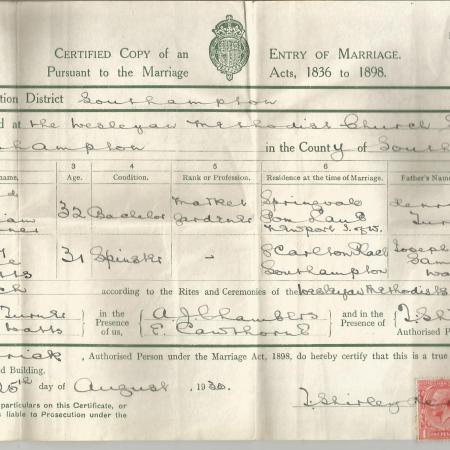 CERTIFIED COPY OF AN ENTRY OF MARRIAGE.
PURSUANT TO THE MARRIAGE ACTS, 1836 TO 1898.
tion District Southampton
d at the Wesleyan Methodist Church
hampton in the County of South
3 4 5 6
name, Age. Condition. Rank or Profession. Residence at the time of Marriage. Father's Na
32 Bachelor Market Gardener Springvale
Pan Lane
Newport I. of W.
31 Spinster - 8 Carlton Place
Southampton
Joseph
Sam
Wa
according to the Rites and Ceremonies of the Wesleyan Methodists
Turner
Watts
in the Presence of us,
A J Chambers
E. Cawthorne
and in the Presence of
Authorised P
rick, Authorised Person under the Marriage Act, 1898, do hereby certify that this is a true
d Building.
25th day of August, 1930.
particulars on this Certificate, or
is liable to Prosecution under the
J. Shirley